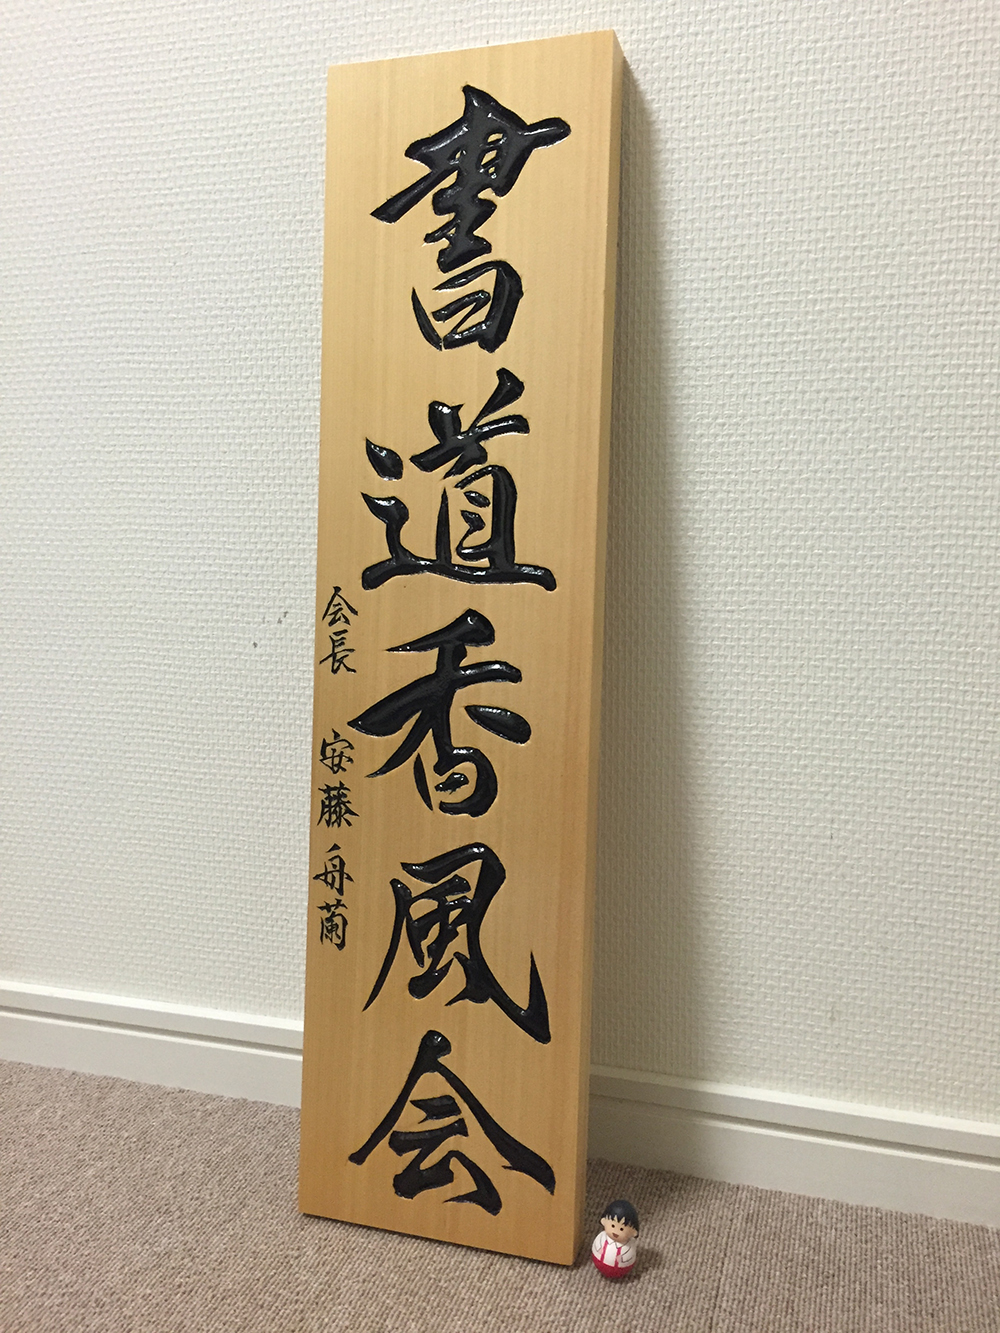 書道香風会
会長 安藤舟蘭